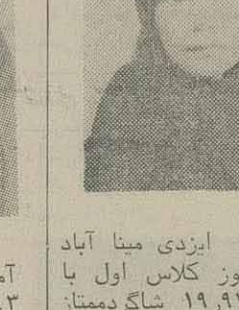 ایزدی مینا آباد
وز کلاس اول با
۱۹٫۹ شاگردممتاز
آم
۳